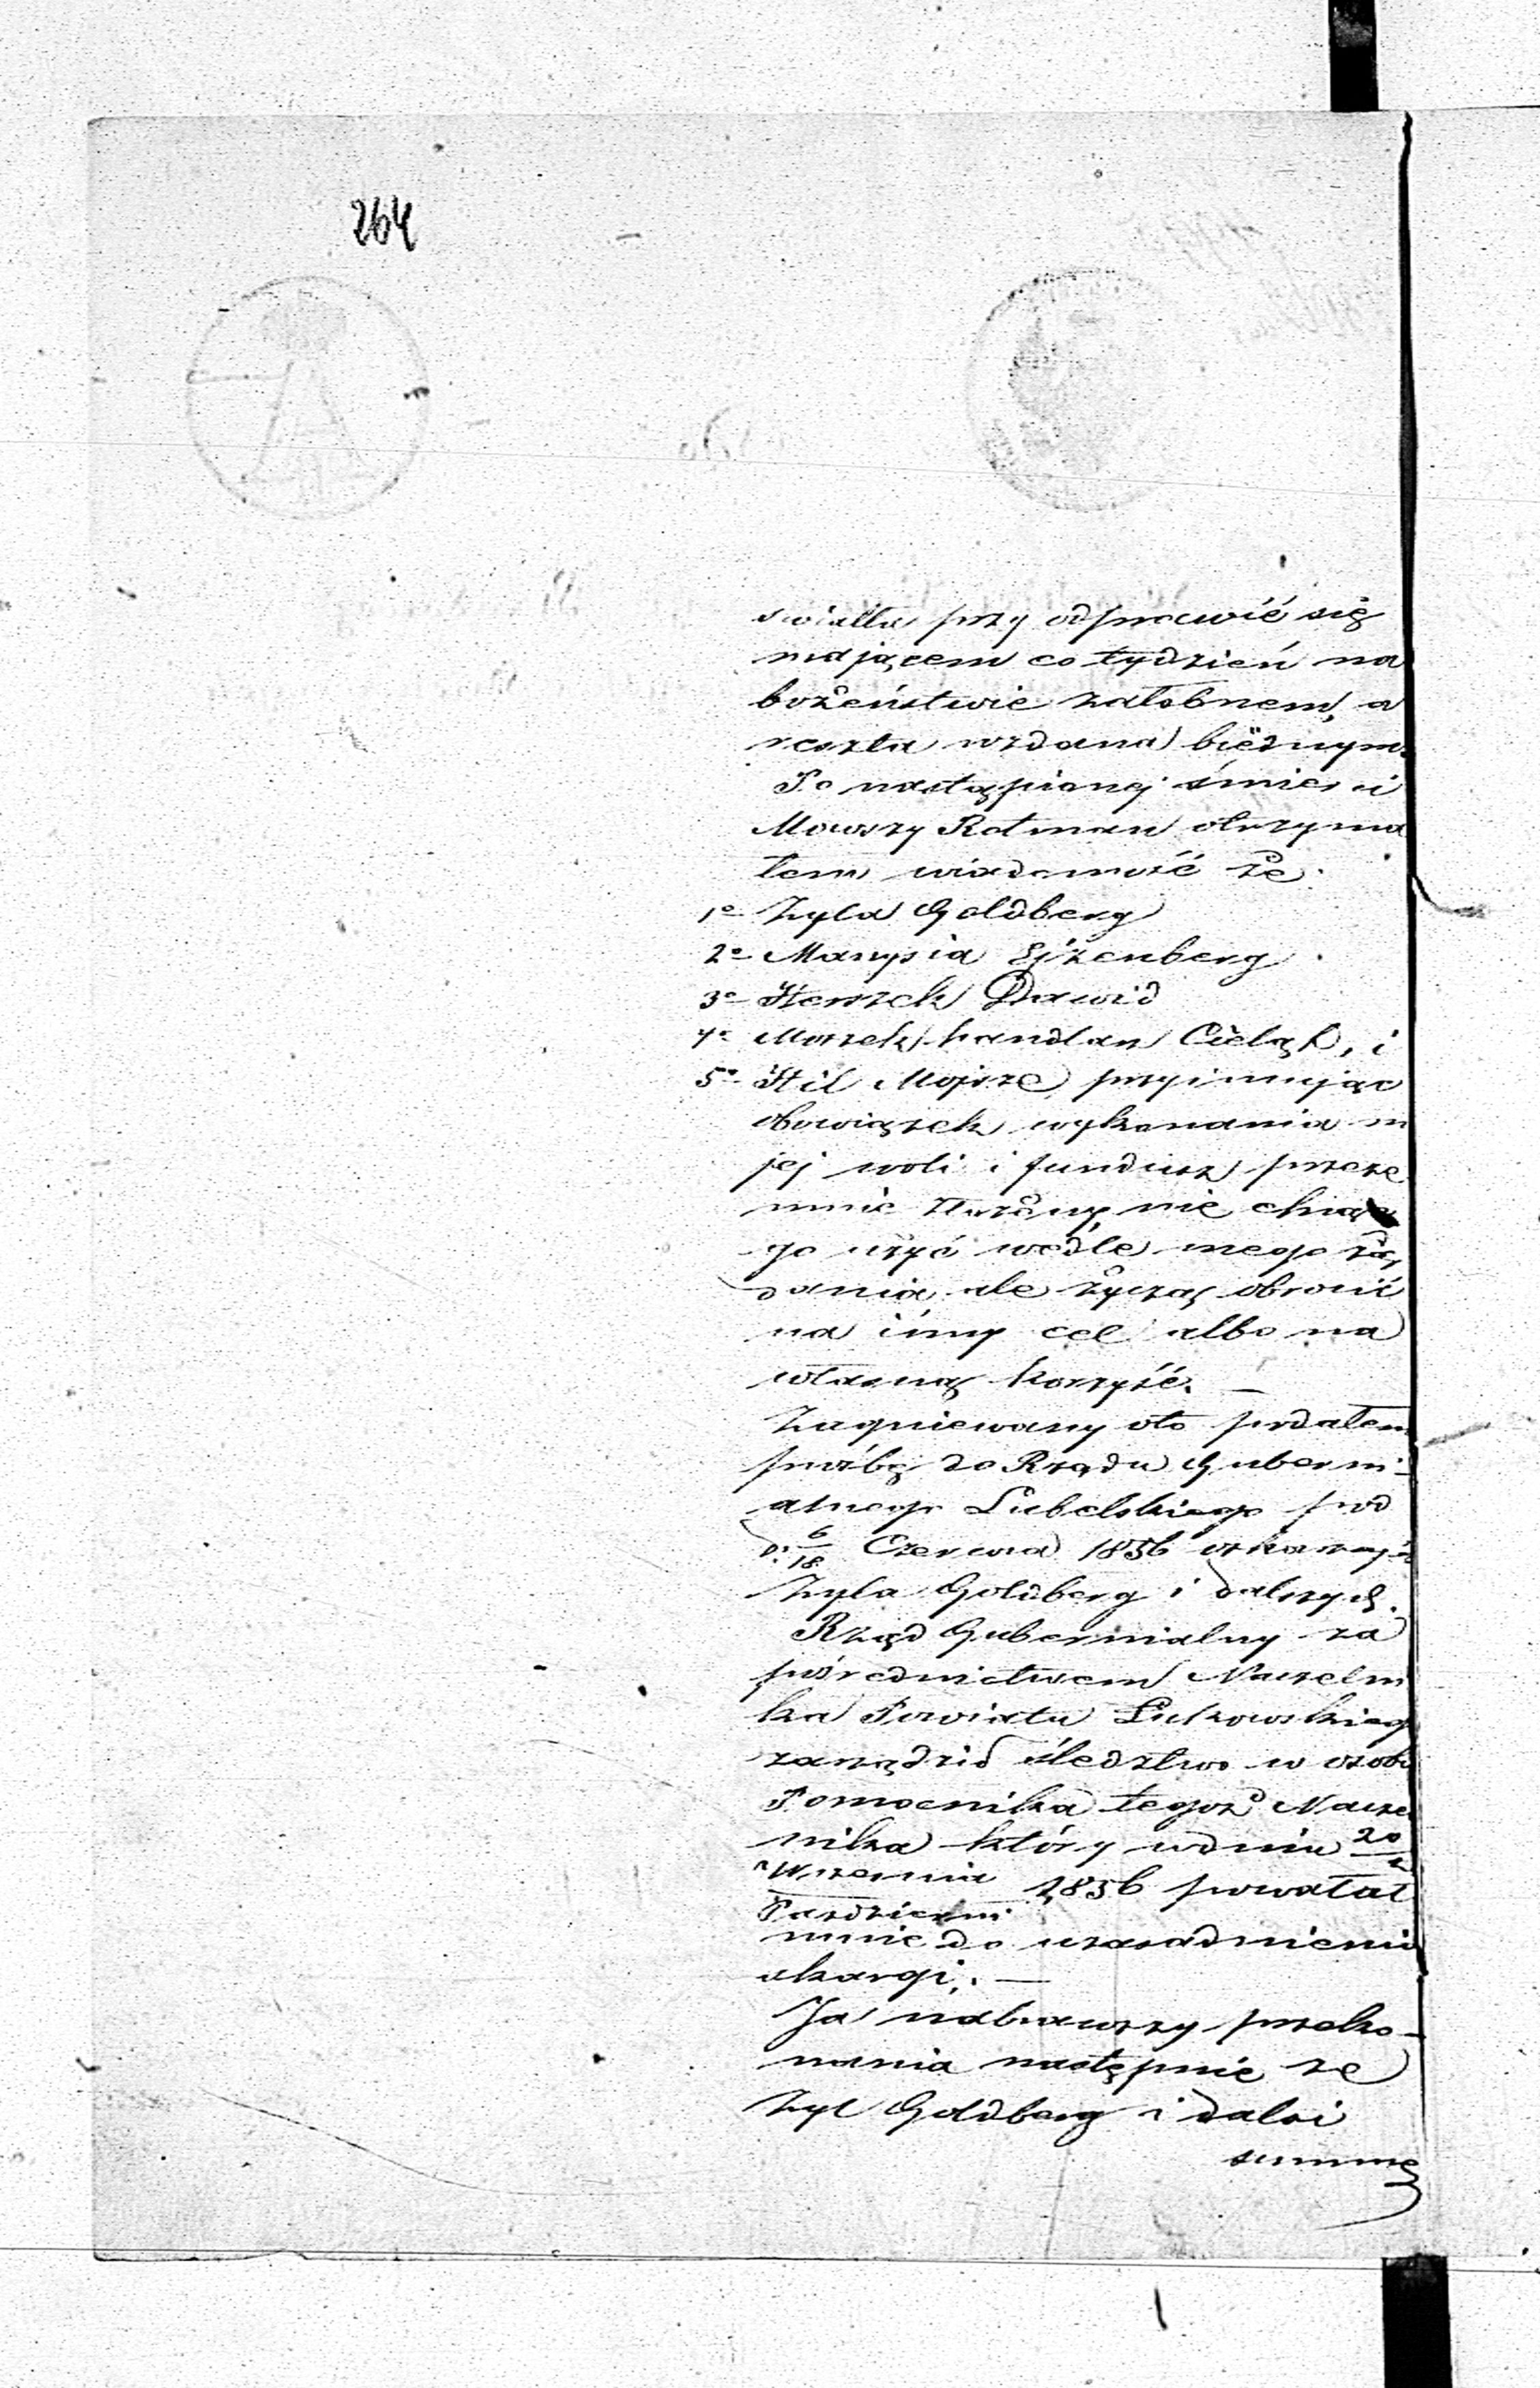 264
swiatła przy odprawić się
mającem co tydzień na
bożeństwie załobnem, a
reszta wzdana biédnym.
Po nastąpionej śmierci
Mowszy Rotman otrzyma
łem wiadomość że
1o Zyla Goldberg
2o Manysia Ejzenberg
3o Herszek Dawid
4o Moszek handlarz Cieląt, i
5o Hil Mojsze przyimując
obowiązek wykonania m
jej woli i fundusz przeze
mnie złożony, nie chcą
go użyć wedle mego żą
dania, ale życzą obrocić
na inny cel albo na
własną korzyść. —
Zagniewany oto podałem
proźbę do Rządu Guberni-
alnego Lubelskiego pod
d: 6/18 Czerwca 1856 oskarzają
Zyla Goldberg i dalszych.
Rząd Gubernialny za
pośrednictwem Naczelni
ka Powiatu Łukowskieg
zarządził śledztwo w osobi
Pomocnika tegoż Nacze
nika który w dniu 20/2
Wrzesnia
Pazdzierni 1856 powołał
mnie do uzasadnienia
skargi. —
Ja nabrawszy przeko-
nania następnie że
Zyl Goldberg i dalsi
summę